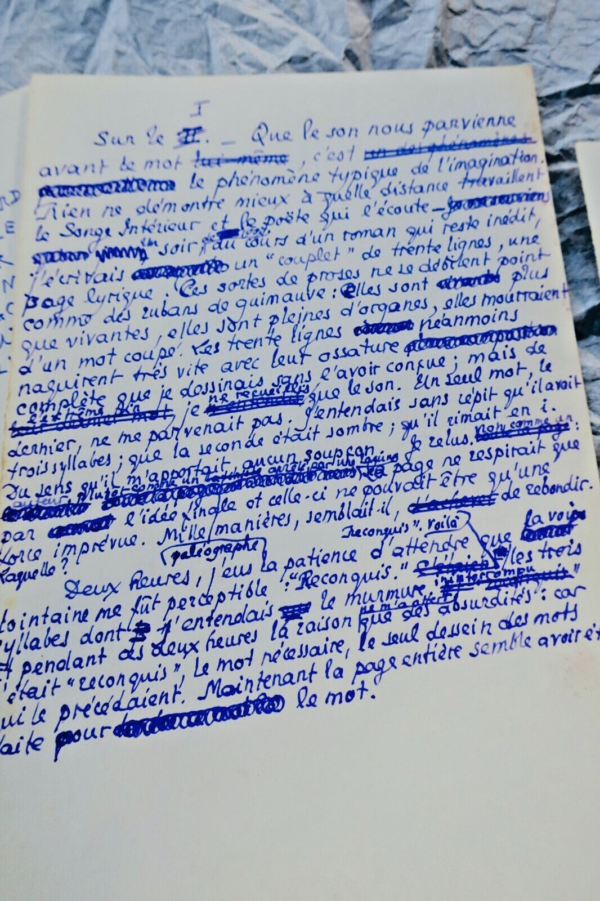 I
Sur le II. _ Que le son nous parvienne
avant le mot lui-même, c'est un des phénomènes
le phénomène typique de l'imagination.
Rien ne démontre mieux à quelle distance travaillent
le Songe Intérieur et le poëte qui l'écoute _
soir, au cours d'un roman qui reste inédit,
j'écrivais un "couplet" de trente lignes, une
page lyrique. Ces sortes de proses ne se débitent point
comme des rubans de guimauve : elles sont plus
que vivantes, elles sont pleines d'organes, elles mourraient
d'un mot coupé. Les trente lignes néanmoins
naquirent très vite avec leur ossature
complète que je dessinais sans l'avoir conçue ; mais de
je ne recueillis que le son. Un seul mot, le
dernier, ne me parvenait pas. J'entendais sans répit qu'il avait
trois syllabes ; que la seconde était sombre ; qu'il rimait en i.
Du sens qu'il m'apportait, aucun soupçon. Je relus.
page ne respirait que
par l'idée finale et celle-ci ne pouvait être qu'une
force imprévue. Mille manières, semblait-il, de rebondir.
Laquelle ?
paléographe
"Reconquis". voilà
Deux heures, j'eus la patience d'attendre que la voix
lointaine me fût perceptible : "Reconquis." les trois
syllabes dont j'entendais le murmure interrompu
pendant ces deux heures la raison ne m'a dicté que des absurdités : car
c'était "reconquis", le mot nécessaire, le seul dessein des mots
qui le précédaient. Maintenant la page entière semble avoir été
faite pour le mot.